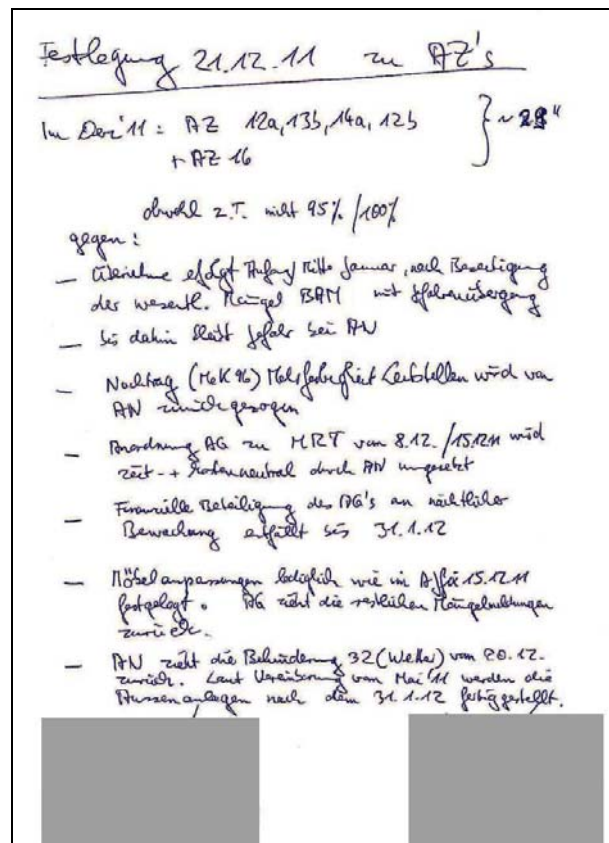 Festlegung 21.12.11 zu AZ's
Im Dez'11 : AZ 12a, 13b, 14a, 12b
+ AZ 16
obwohl z.T. nicht 95% / 100%
gegen :
— Übernahme erfolgt Anfang Mitte Januar, nach Beseitigung
der wesentl. Mängel BAM mit Gefahrenübergang
— bis dahin bleibt Gefahr bei AN
— Nachtrag (MeK 96) Leitstellen wird von
AN zurückgezogen
— Anordnung AG zu MRT vom 8.12. / 15.12.11 wird
zeit- + kostenneutral durch AN umgesetzt
— Finanzielle Beteiligung des AG's an nächtlicher
Bewachung entfällt bis 31.1.12
— Möbelanpassungen lediglich wie im 15.12.11
festgelegt. AG zieht die restlichen Mängelmeldungen
zurück.
— AN zieht die Behinderung 32 (Wetter) vom 20.12.
zurück. Laut Vereinbarung vom Mai '11 werden die
Aussenanlagen nach dem 31.1.12 fertiggestellt.